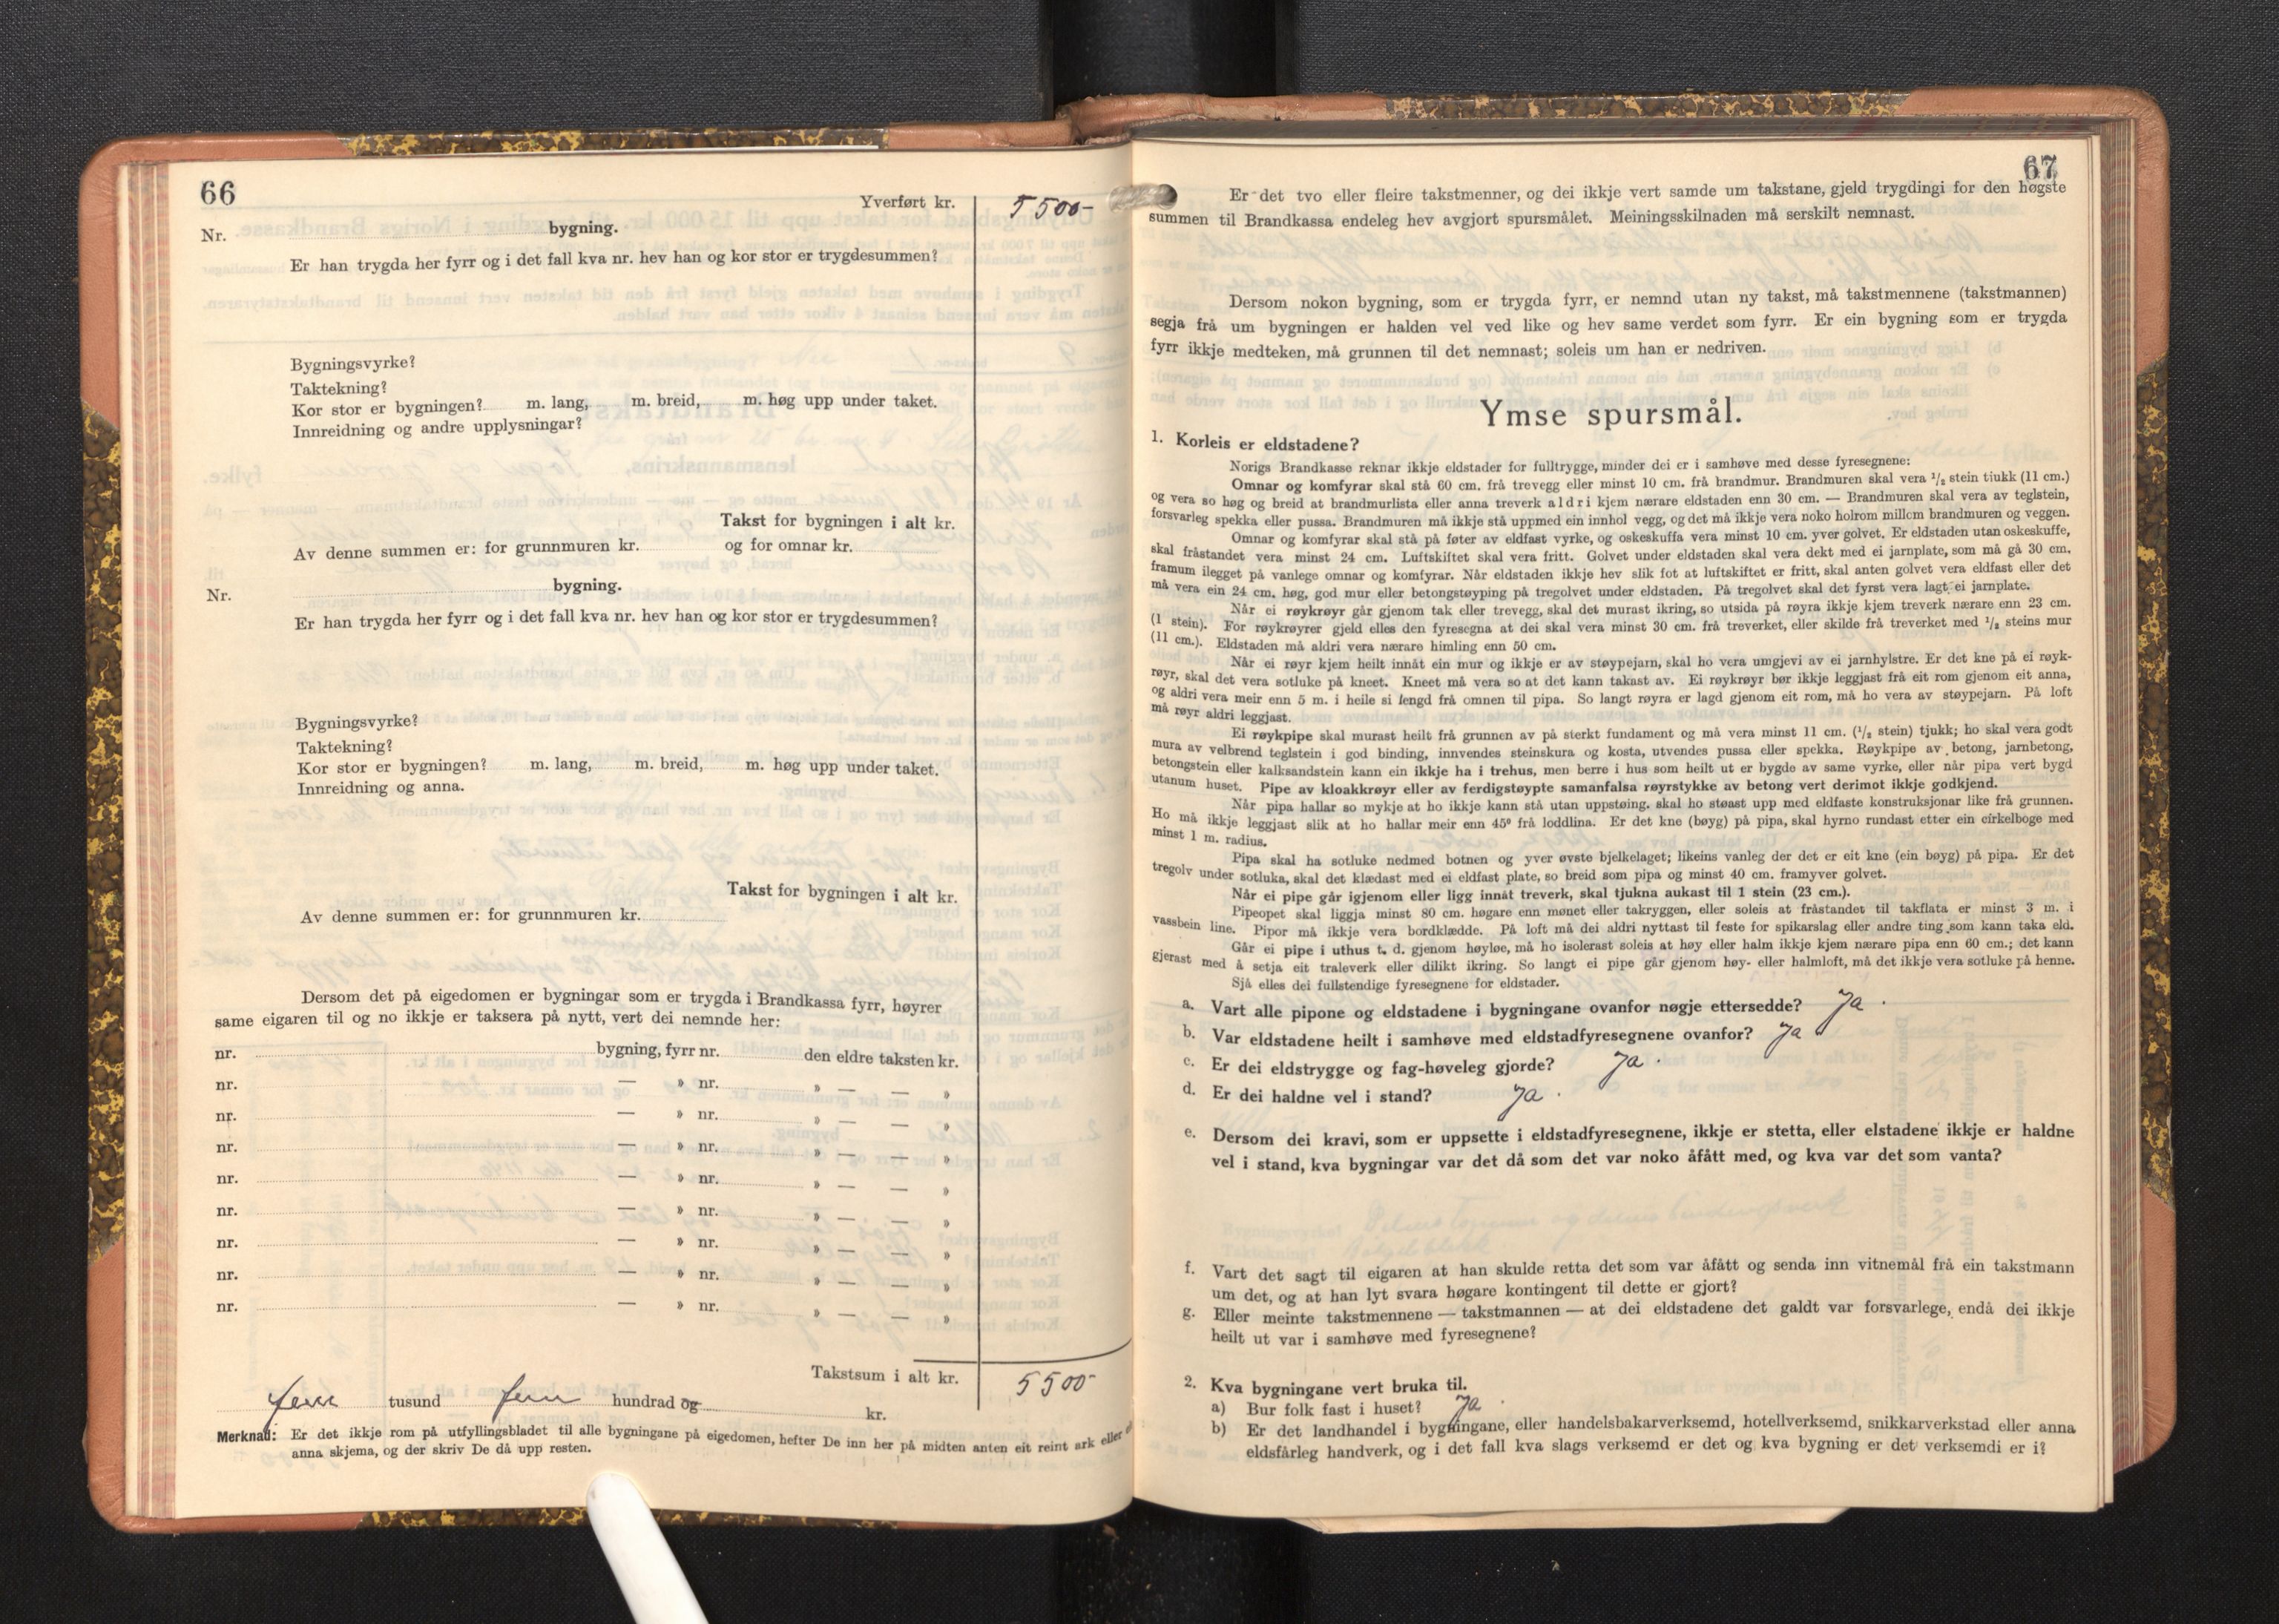 66
Yverført kr. 5500-
Nr. bygning.
Er han trygda her fyrr og i det fall kva nr. hev han og kor stor er trygdesummen?
Bygningsvyrke?
Taktekning?
Kor stor er bygningen? m. lang, m. breid, m. høg upp under taket.
Innreidning og andre upplysningar?
Takst for bygningen i alt kr.
Av denne summen er: for grunnmuren kr. og for omnar kr.
Nr. bygning.
Er han trygda her fyrr og i det fall kva nr. hev han og kor stor er trygdesummen?
Bygningsvyrke?
Taktekning?
Kor stor er bygningen? m. lang, m. breid, m. høg upp under taket.
Innreidning og anna.
Takst for bygningen i alt kr.
Av denne summen er: for grunnmuren kr.
Dersom det på eigedomen er bygningar som er trygda i Brandkassa fyrr, høyrer
same eigaren til og no ikkje er taksera på nytt, vert dei nemnde her:
nr. bygning, fyrr nr. den eldre taksten kr.
nr. — » nr. » — — »
nr. — » nr. » — — »
nr. — » nr. » — — »
nr. — » nr. » — — »
nr. — » nr. » — — »
nr. — » nr. » — — »
nr. — » nr. » — — »
nr. — » nr. » — — »
Takstsum i alt kr. 5500-
fem tusund fem hundrad og kr.
Merknad: Er det ikkje rom på utfyllingsbladet til alle bygningane på eigedomen, hefter De inn her på midten anten eit reint ark eller
anna skjema, og der skriv De då upp resten.
67
Er det tvo eller fleire takstmenner, og dei ikkje vert samde um takstane, gjeld trygdingi for den høgste
summen til Brandkassa endeleg hev avgjort spursmålet. Meiningsskilnaden må serskilt nemnast.
Dersom nokon bygning, som er trygda fyrr, er nemnd utan ny takst, må takstmennene (takstmannen)
segja frå um bygningen er halden vel ved like og hev same verdet som fyrr. Er ein bygning som er trygda
fyrr ikkje medteken, må grunnen til det nemnast; soleis um han er nedriven.
Ymse spursmål.
1. Korleis er eldstadene?
Norigs Brandkasse reknar ikkje eldstader for fulltrygge, minder dei er i samhøve med desse fyresegnene:
Omnar og komfyrar skal stå 60 cm. frå trevegg eller minst 10 cm. frå brandmur. Brandmuren skal vera 1/2 stein tjukk (11 cm.)
og vera so høg og breid at brandmurlista eller anna treverk aldri kjem nærare eldstaden enn 30 cm. — Brandmuren skal vera av teglstein,
forsvarleg spekka eller pussa. Brandmuren må ikkje stå uppmed ein innhol vegg, og det må ikkje vera noko holrom millom brandmuren og veggen.
Omnar og komfyrar skal stå på føter av eldfast vyrke, og oskeskuffa vera minst 10 cm. yver golvet. Er eldstaden utan oskeskuffe,
skal fråstandet vera minst 24 cm. Luftskiftet skal vera fritt. Golvet under eldstaden skal vera dekt med ei jarnplate, som må gå 30 cm.
framum ilegget på vanlege omnar og komfyrar. Når eldstaden ikkje hev slik fot at luftskiftet er fritt, skal anten golvet vera eldfast eller det
må vera ein 24 cm. høg, god mur eller betongstøyping på tregolvet under eldstaden. På tregolvet skal det fyrst vera lagt ei jarnplate.
Når ei røykrøyr går gjenom tak eller trevegg, skal det murast ikring, so utsida på røyra ikkje kjem treverk nærare enn 23 cm.
(1 stein). For røykrøyrer gjeld elles den fyresegna at dei skal vera minst 30 cm. frå treverket, eller skilde frå treverket med 1/2 steins mur
(11 cm.). Eldstaden må aldri vera nærare himling enn 50 cm.
Når ei røyr kjem heilt innåt ein mur og ikkje er av støypejarn, skal ho vera umgjevi av ei jarnhylstre. Er det kne på ei røyk-
røyr, skal det vera sotluke på kneet. Kneet må vera so at det kann takast av. Ei røykrøyr bør ikkje leggjast frå eit rom gjenom eit anna,
og aldri vera meir enn 5 m. i heile si lengd frå omnen til pipa. So langt røyra er lagd gjenom eit rom, må ho vera av støypejarn. På loft
må røyr aldri leggjast.
Ei røykpipe skal murast heilt frå grunnen av på sterkt fundament og må vera minst 11 cm. (1/2 stein) tjukk; ho skal vera godt
mura av velbrend teglstein i god binding, innvendes steinskura og kosta, utvendes pussa eller spekka. Røykpipe av betong, jarnbetong,
betongstein eller kalksandstein kann ein ikkje ha i trehus, men berre i hus som heilt ut er bygde av same vyrke, eller når pipa vert bygd
utanum huset. Pipe av kloakkrøyr eller av ferdigstøypte samanfalsa røyrstykke av betong vert derimot ikkje godkjend.
Når pipa hallar so mykje at ho ikkje kann stå utan uppstøing. skal ho støast upp med eldfaste konstruksjonar like frå grunnen.
Ho må ikkje leggjast slik at ho hallar meir enn 45° frå loddlina. Er det kne (bøyg) på pipa, skal hyrno rundast etter ein cirkelboge med
minst 1 m. radius.
Pipa skal ha sotluke nedmed botnen og yver øvste bjelkelaget; likeins vanleg der det er eit kne (ein bøyg) på pipa. Er det
tregolv under sotluka, skal det klædast med ei eldfast plate, so breid som pipa og minst 40 cm. framyver golvet.
Når ei pipe går igjenom eller ligg innåt treverk, skal tjukna aukast til 1 stein (23 cm.).
Pipeopet skal liggja minst 80 cm. høgare enn mønet eller takryggen, eller soleis at fråstandet til takflata er minst 3 m. i
vassbein line. Pipor må ikkje vera bordklædde. På loft må dei aldri nyttast til feste for spikarslag eller andre ting som kann taka eld.
Går ei pipe i uthus t. d. gjenom høyløe, må ho isolerast soleis at høy eller halm ikkje kjem nærare pipa enn 60 cm.; det kann
gjerast med å setja eit traleverk eller dilikt ikring. So langt ei pipe går gjenom høy- eller halmloft, må det ikkje vera sotluke på henne.
Sjå elles dei fullstendige fyresegnene for eldstader.
a. Vart alle pipone og eldstadene i bygningane ovanfor nøgje ettersedde? Ja.
b. Var eldstadene heilt i samhøve med eldstadfyresegnene ovanfor? Ja
c. Er dei eldstrygge og fag-høveleg gjorde? Ja.
d. Er dei haldne vel i stand? Ja.
e. Dersom dei kravi, som er uppsette i eldstadfyresegnene, ikkje er stetta, eller elstadene ikkje er haldne
vel i stand, kva bygningar var det då som det var noko åfått med, og kva var det som vanta?
f. Vart det sagt til eigaren at han skulde retta det som var åfått og senda inn vitnemål frå ein takstmann
um det, og at han lyt svara høgare kontingent til dette er gjort?
g. Eller meinte takstmennene — takstmannen — at dei eldstadene det galdt var forsvarlege, endå dei ikkje
heilt ut var i samhøve med fyresegnene?
2. Kva bygningane vert bruka til.
a) Bur folk fast i huset? Ja.
b) Er det landhandel i bygningane, eller handelsbakarverksemd, hotellverksemd, snikkarverkstad eller anna
eldsfårleg handverk, og i det fall kva slags verksemd er det og kva bygning er det verksemdi er i?